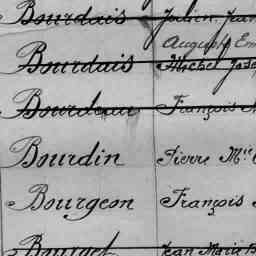 Bourdais Julien Jean
Auguste Em
Bourdais Michel Jose
Bourdeau François
Bourdin Pierre M.
Bourgeon François
Bourget Jean Marie